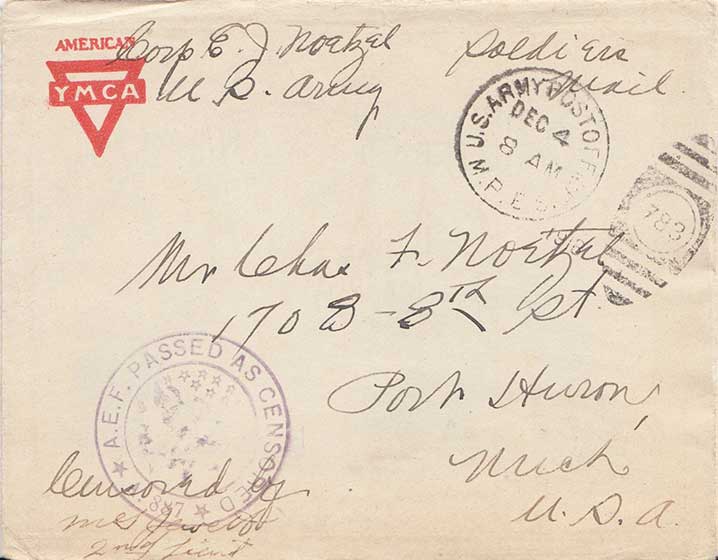 AMERICAN
YMCA
Corp E. J. Noetzel
U. S. Army
Soldiers
Mail.
U.S. ARMY POST OFFICE
DEC 4
8 AM
M.P.E.S.
783
Mr Chas F. Noetzel
1708 - 8th St.
Port Huron,
Mich
U. S. A.
A.E.F. PASSED AS CENSORED
Censored by
2nd Lieut